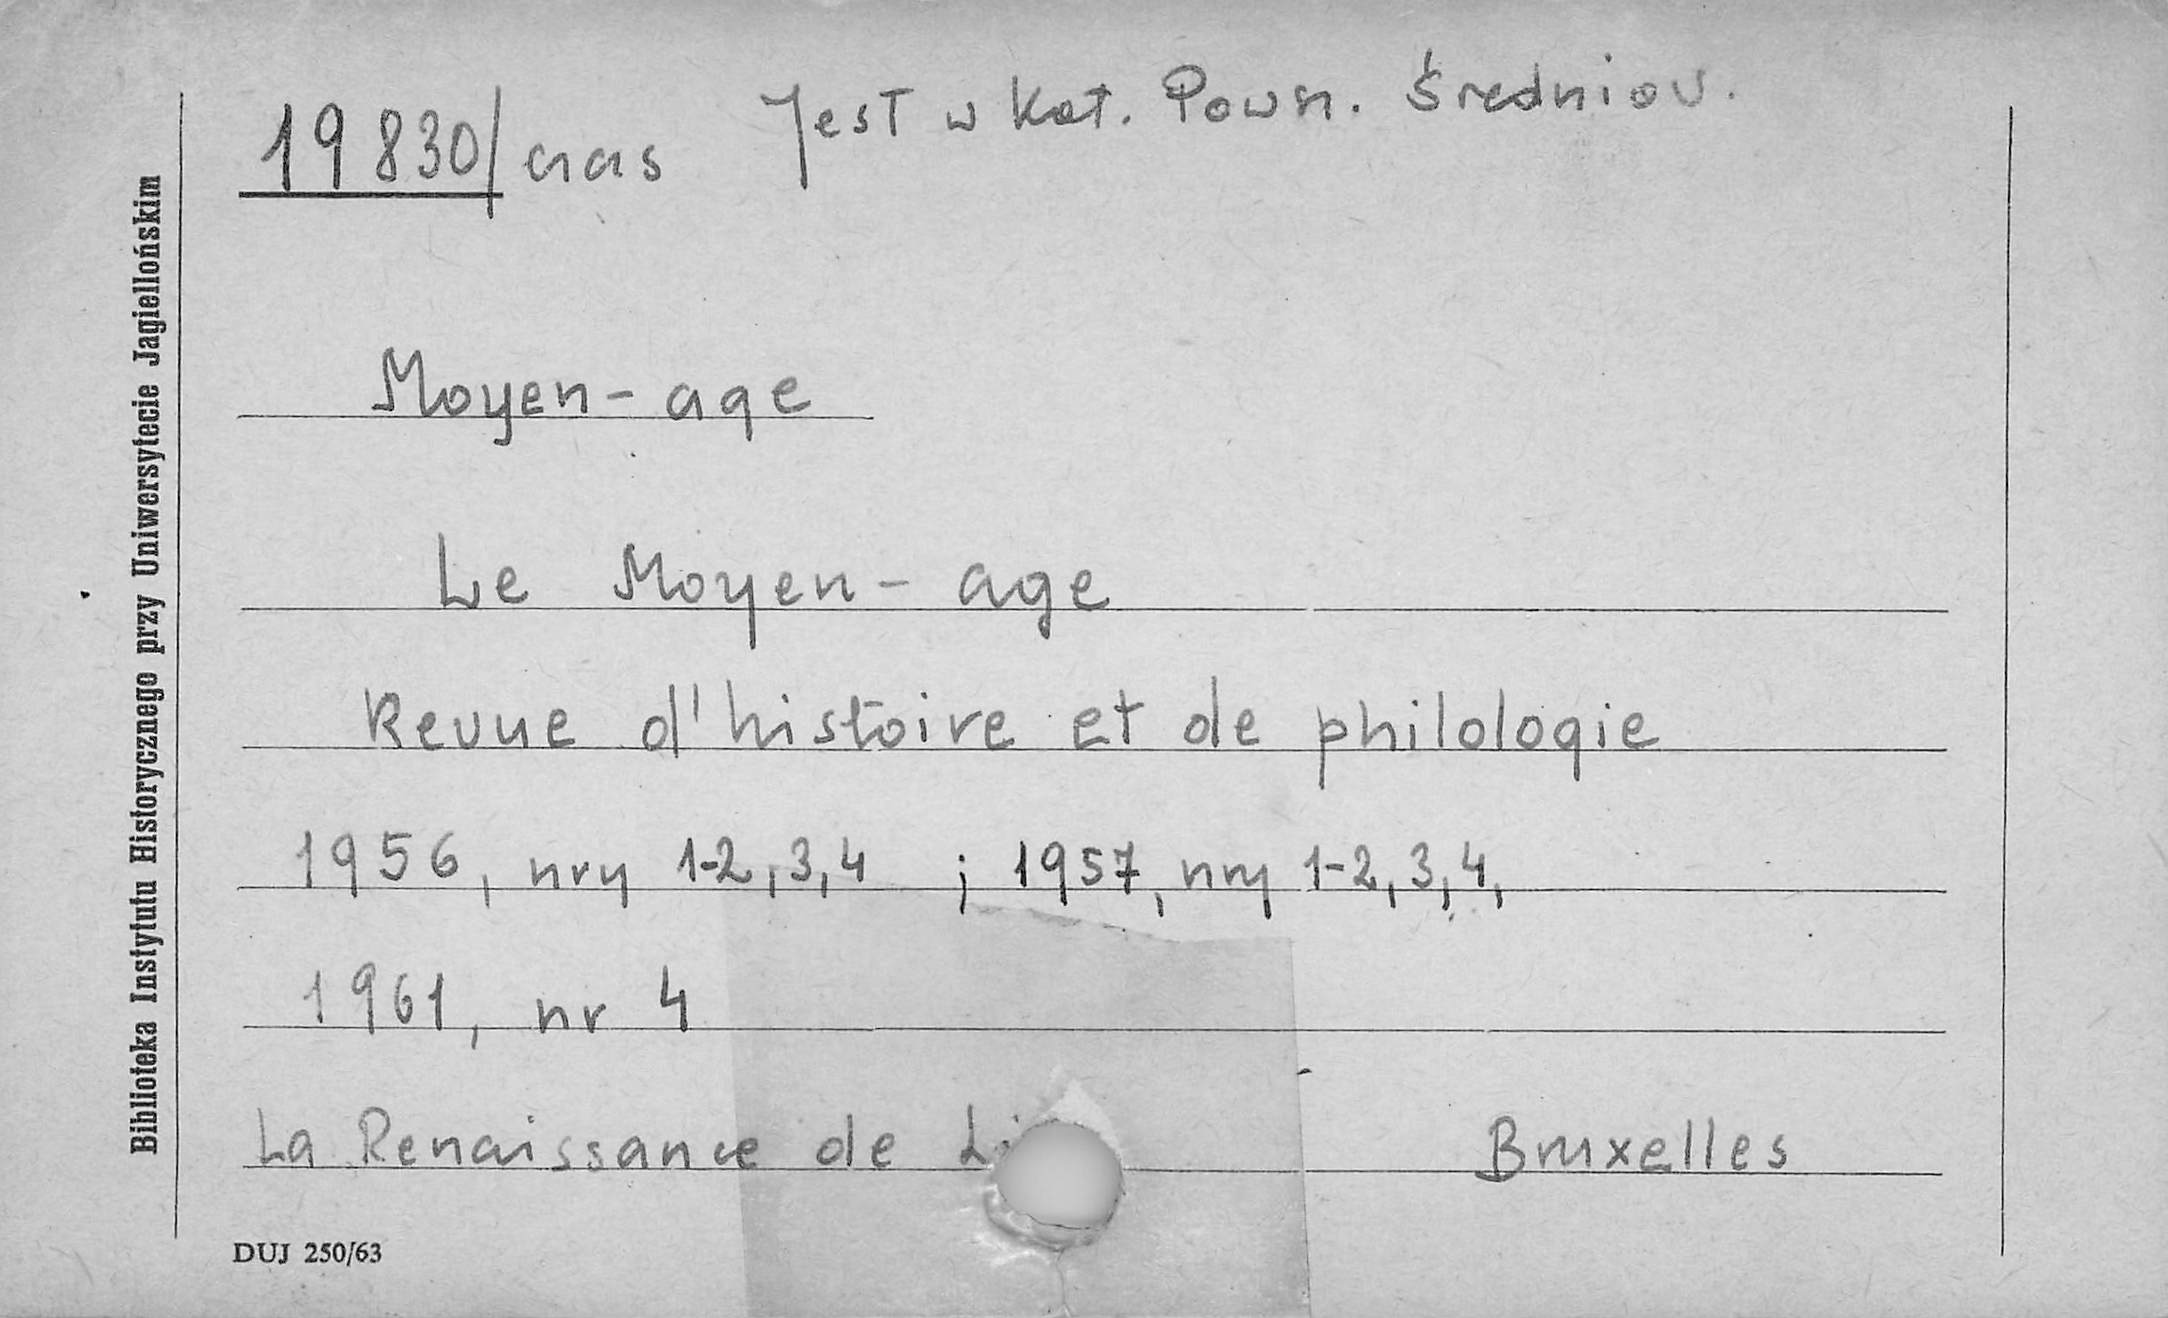 19830/czas
Jest w kat. Powsz. Średniow.
Moyen-age
Le Moyen-age
Revue d'histoire et de philologie
1956, nry 1-2, 3, 4 ; 1957, nry 1-2, 3, 4,
1961, nr 4
La Renaissance de Bruxelles
DUJ 250/63
Biblioteka Instytutu Historycznego przy Uniwersytecie Jagiellońskim